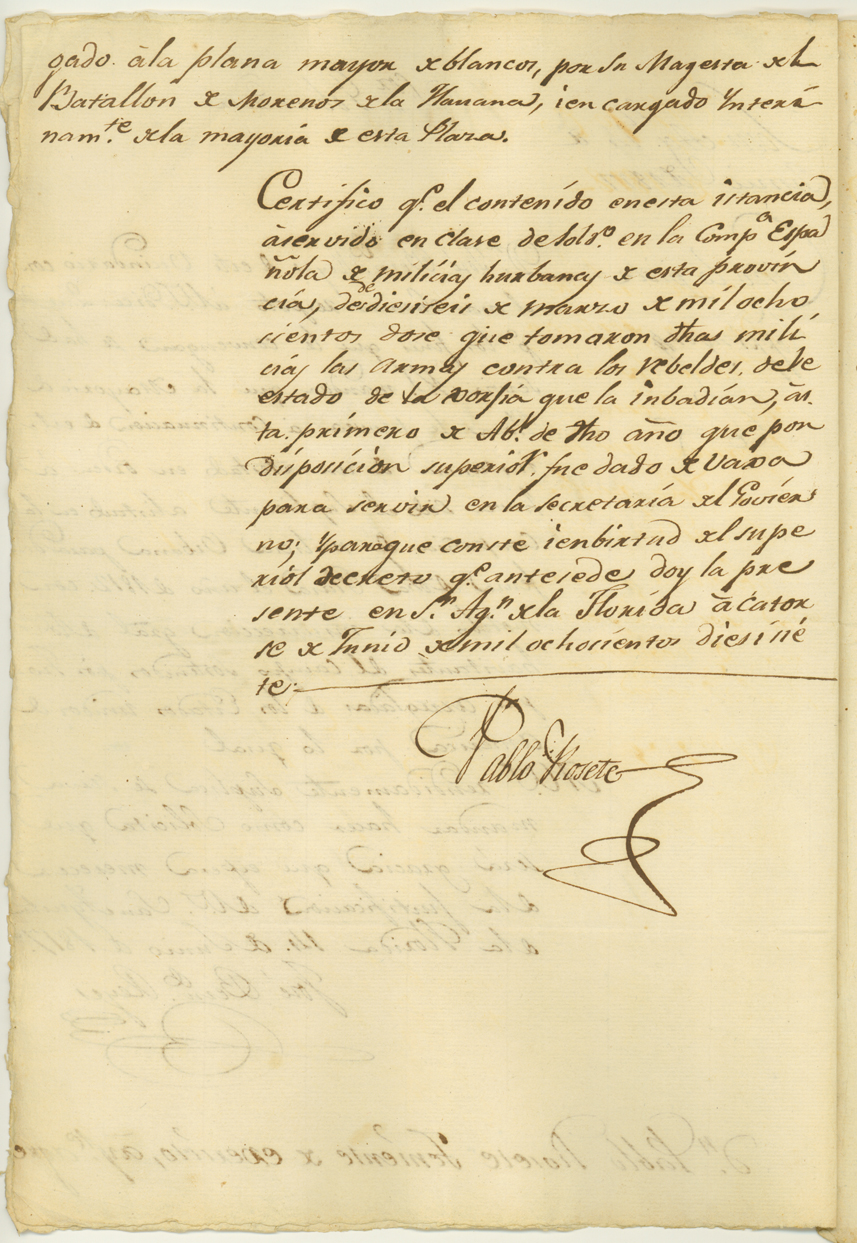 gado. à la plana mayor x blancos, por Su Magesta xl
Batallon x Morenos xla Havana, i en cargado Interi-
nam.te xla mayoria x esta Plaza.
Certifico q.e el contenido enesta istancia,
à servido en clase de sold.o en la Comp.a Espa
ñola x milicias hurbanas x esta provin
cia, desde diesiseis x marzo x mil ocho
cientos dose que tomaron dhas mili
cias las armas contra los rebeldes. del e
estado de la Xorxia que la inbadian, às
ta. primero x Ab.l de dho año que por
disposicion superior. fue dado x vaxa
para servir en la secretaria xl Govier
no; y paraque conste i enbirtud xl supe
rior decreto q.e antesede doy la pre
sente en S.n Ag.n xla Florida à cator
se x Junio x mil ochosientos diesisie
te.
Pablo Rosete